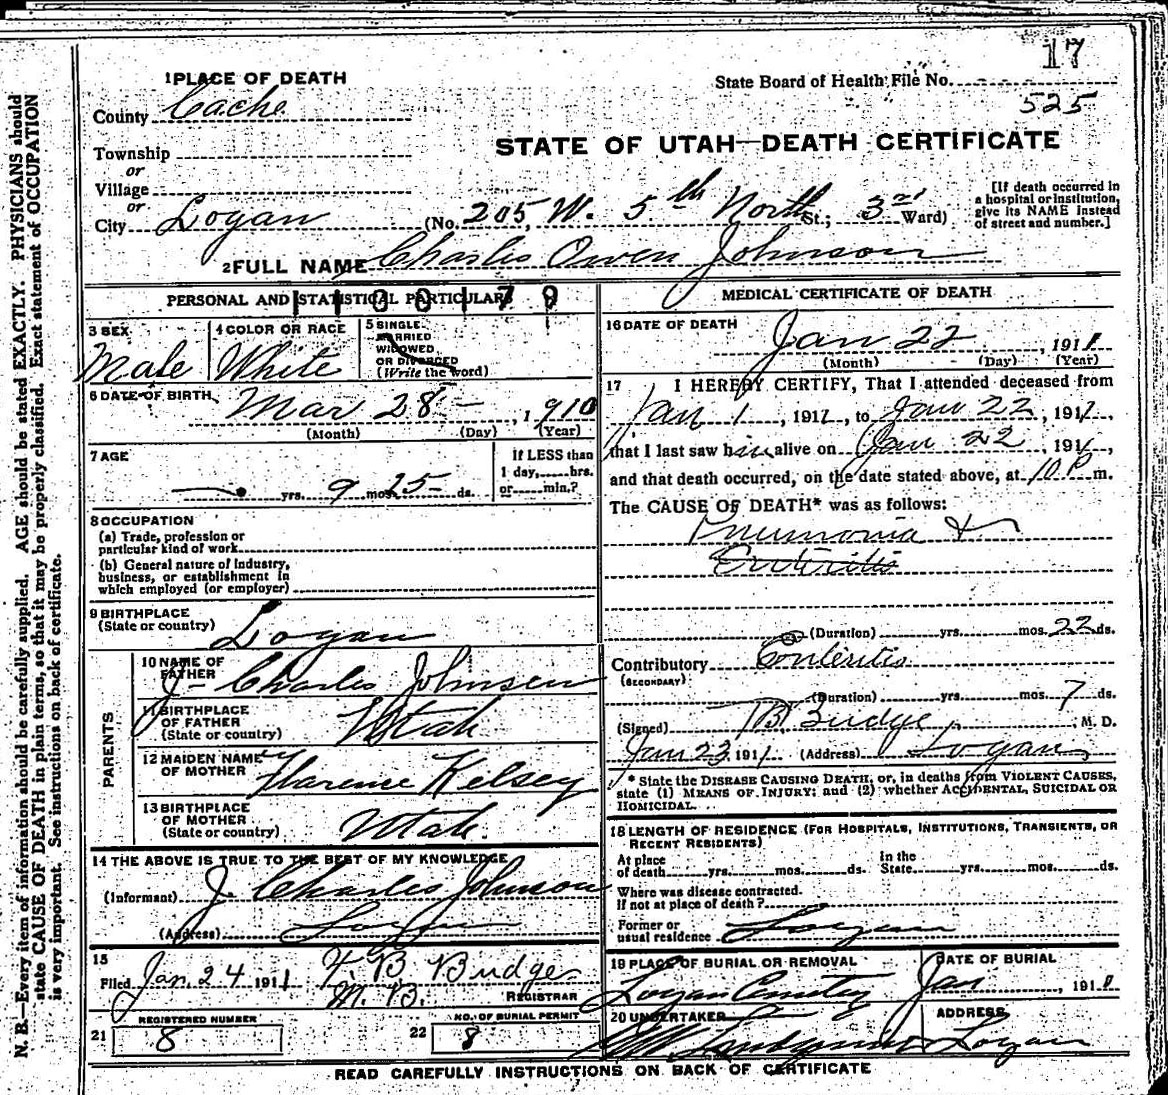 17
State Board of Health File No.
525
1 PLACE OF DEATH
County Cache
STATE OF UTAH—DEATH CERTIFICATE
Township
or
Village
or
City Logan (No. 205, W. 5th North St.; 3rd Ward)
[If death occurred in a hospital or institution, give its NAME instead of street and number.]
2 FULL NAME Charles Owen Johnson
PERSONAL AND STATISTICAL PARTICULARS
1100179
3 SEX
Male
4 COLOR OR RACE
White
5 SINGLE,
MARRIED
WIDOWED
OR DIVORCED
(Write the word)
6 DATE OF BIRTH
Mar 28 - , 1910
(Month) (Day) (Year)
7 AGE
— yrs. 9 mos. 25 ds.
If LESS than
1 day, hrs.
or min.?
8 OCCUPATION
(a) Trade, profession or
particular kind of work
(b) General nature of industry,
business, or establishment in
which employed (or employer)
9 BIRTHPLACE
(State or country) Logan
PARENTS
10 NAME OF
FATHER J- Charles Johnsen
11 BIRTHPLACE
OF FATHER
(State or country) Utah
12 MAIDEN NAME
OF MOTHER Florence Kelsey
13 BIRTHPLACE
OF MOTHER
(State or country) Utah.
14 THE ABOVE IS TRUE TO THE BEST OF MY KNOWLEDGE
(Informant) J. Charles Johnson
(Address) Logan
15
Filed Jan. 24 1911 B Budge
REGISTRAR
21 REGISTERED NUMBER
8
22 NO. OF BURIAL PERMIT
8
MEDICAL CERTIFICATE OF DEATH
16 DATE OF DEATH
Jan 22 , 1911
(Month) (Day) (Year)
17 I HEREBY CERTIFY, That I attended deceased from
Jan 1 , 1911, to Jan 22 , 1911,
that I last saw him alive on Jan 22 , 1911,
and that death occurred, on the date stated above, at 10 P m.
The CAUSE OF DEATH* was as follows:
Pneumonia &
Enteritis
(Duration) yrs. mos. 22 ds.
Contributory Enteritis
(SECONDARY)
(Duration) yrs. mos. 7 ds.
(Signed) Budge, M. D.
Jan 23, 1911 (Address) Logan
* State the DISEASE CAUSING DEATH, or, in deaths from VIOLENT CAUSES,
state (1) MEANS OF INJURY; and (2) whether ACCIDENTAL, SUICIDAL OR
HOMICIDAL.
18 LENGTH OF RESIDENCE (FOR HOSPITALS, INSTITUTIONS, TRANSIENTS, OR
RECENT RESIDENTS)
At place
of death yrs. mos. ds.
In the
State yrs. mos. ds.
Where was disease contracted.
if not at place of death?
Former or
usual residence Logan
19 PLACE OF BURIAL OR REMOVAL
Logan Cemetery
DATE OF BURIAL
Jan , 191
20 UNDERTAKER
ADDRESS
Logan
READ CAREFULLY INSTRUCTIONS ON BACK OF CERTIFICATE
N. B.—Every item of information should be carefully supplied. AGE should be stated EXACTLY. PHYSICIANS should
state CAUSE OF DEATH in plain terms, so that it may be properly classified. Exact statement of OCCUPATION
is very important. See instructions on back of certificate.